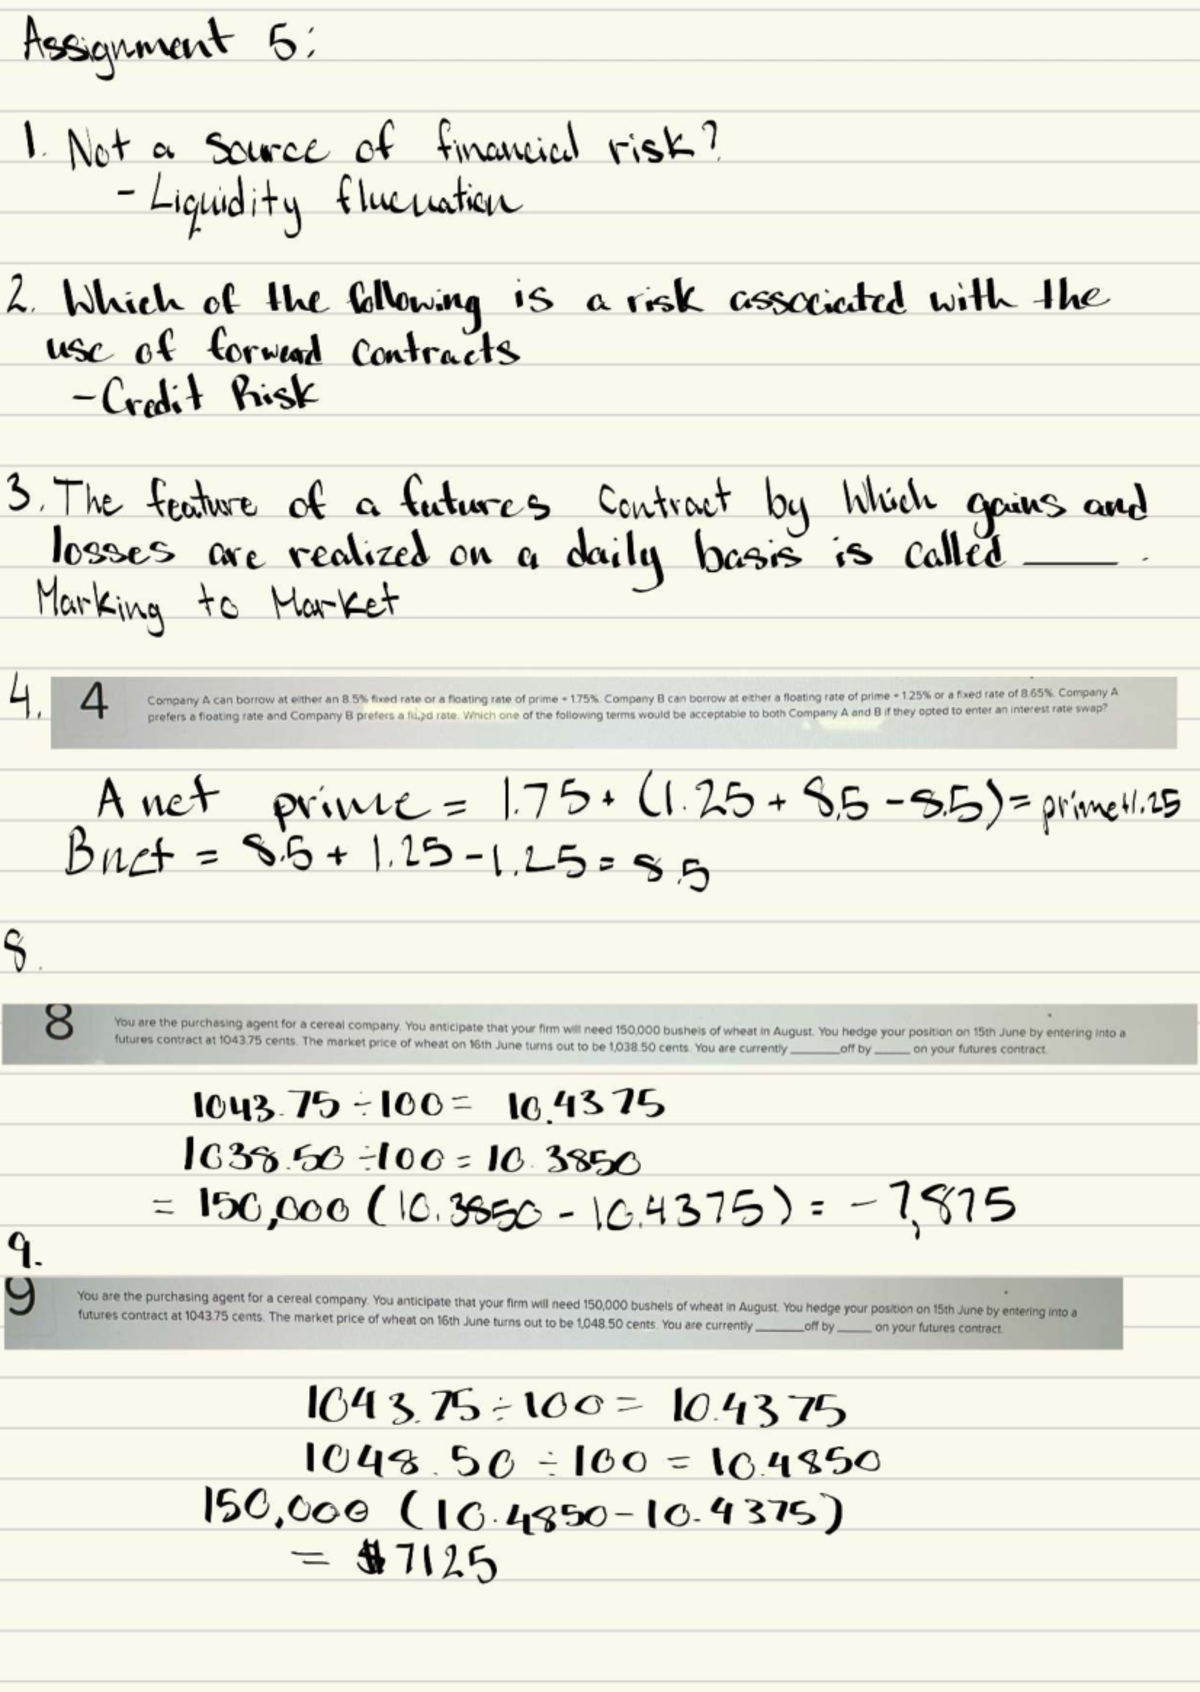 Assignment 5:
1. Not a source of financial risk?
- Liquidity flucuation
2. Which of the following is a risk associated with the
use of forward contracts
- Credit Risk
3. The feature of a futures Contract by Which gains and
losses are realized on a daily basis is called ____.
Marking to Market
4. 4 Company A can borrow at either an 8.5% fixed rate or a floating rate of prime + 1.75%. Company B can borrow at either a floating rate of prime + 1.25% or a fixed rate of 8.65%. Company A
prefers a floating rate and Company B prefers a fixed rate. Which one of the following terms would be acceptable to both Company A and B if they opted to enter an interest rate swap?
A net prime = 1.75 + (1.25 + 8.5 - 8.5) = prime+1.25
B net = 8.5 + 1.25 - 1.25 = 8.5
8.
8 You are the purchasing agent for a cereal company. You anticipate that your firm will need 150,000 bushels of wheat in August. You hedge your position on 15th June by entering into a
futures contract at 1043.75 cents. The market price of wheat on 16th June turns out to be 1,038.50 cents. You are currently ____ off by ____ on your futures contract.
1043.75 ÷ 100 = 10.4375
1038.50 ÷ 100 = 10.3850
= 150,000 (10.3850 - 10.4375) = - 7,875
9.
9 You are the purchasing agent for a cereal company. You anticipate that your firm will need 150,000 bushels of wheat in August. You hedge your position on 15th June by entering into a
futures contract at 1043.75 cents. The market price of wheat on 16th June turns out to be 1,048.50 cents. You are currently ____ off by ____ on your futures contract.
1043.75 ÷ 100 = 10.4375
1048.50 ÷ 100 = 10.4850
150,000 (10.4850 - 10.4375)
= $7125